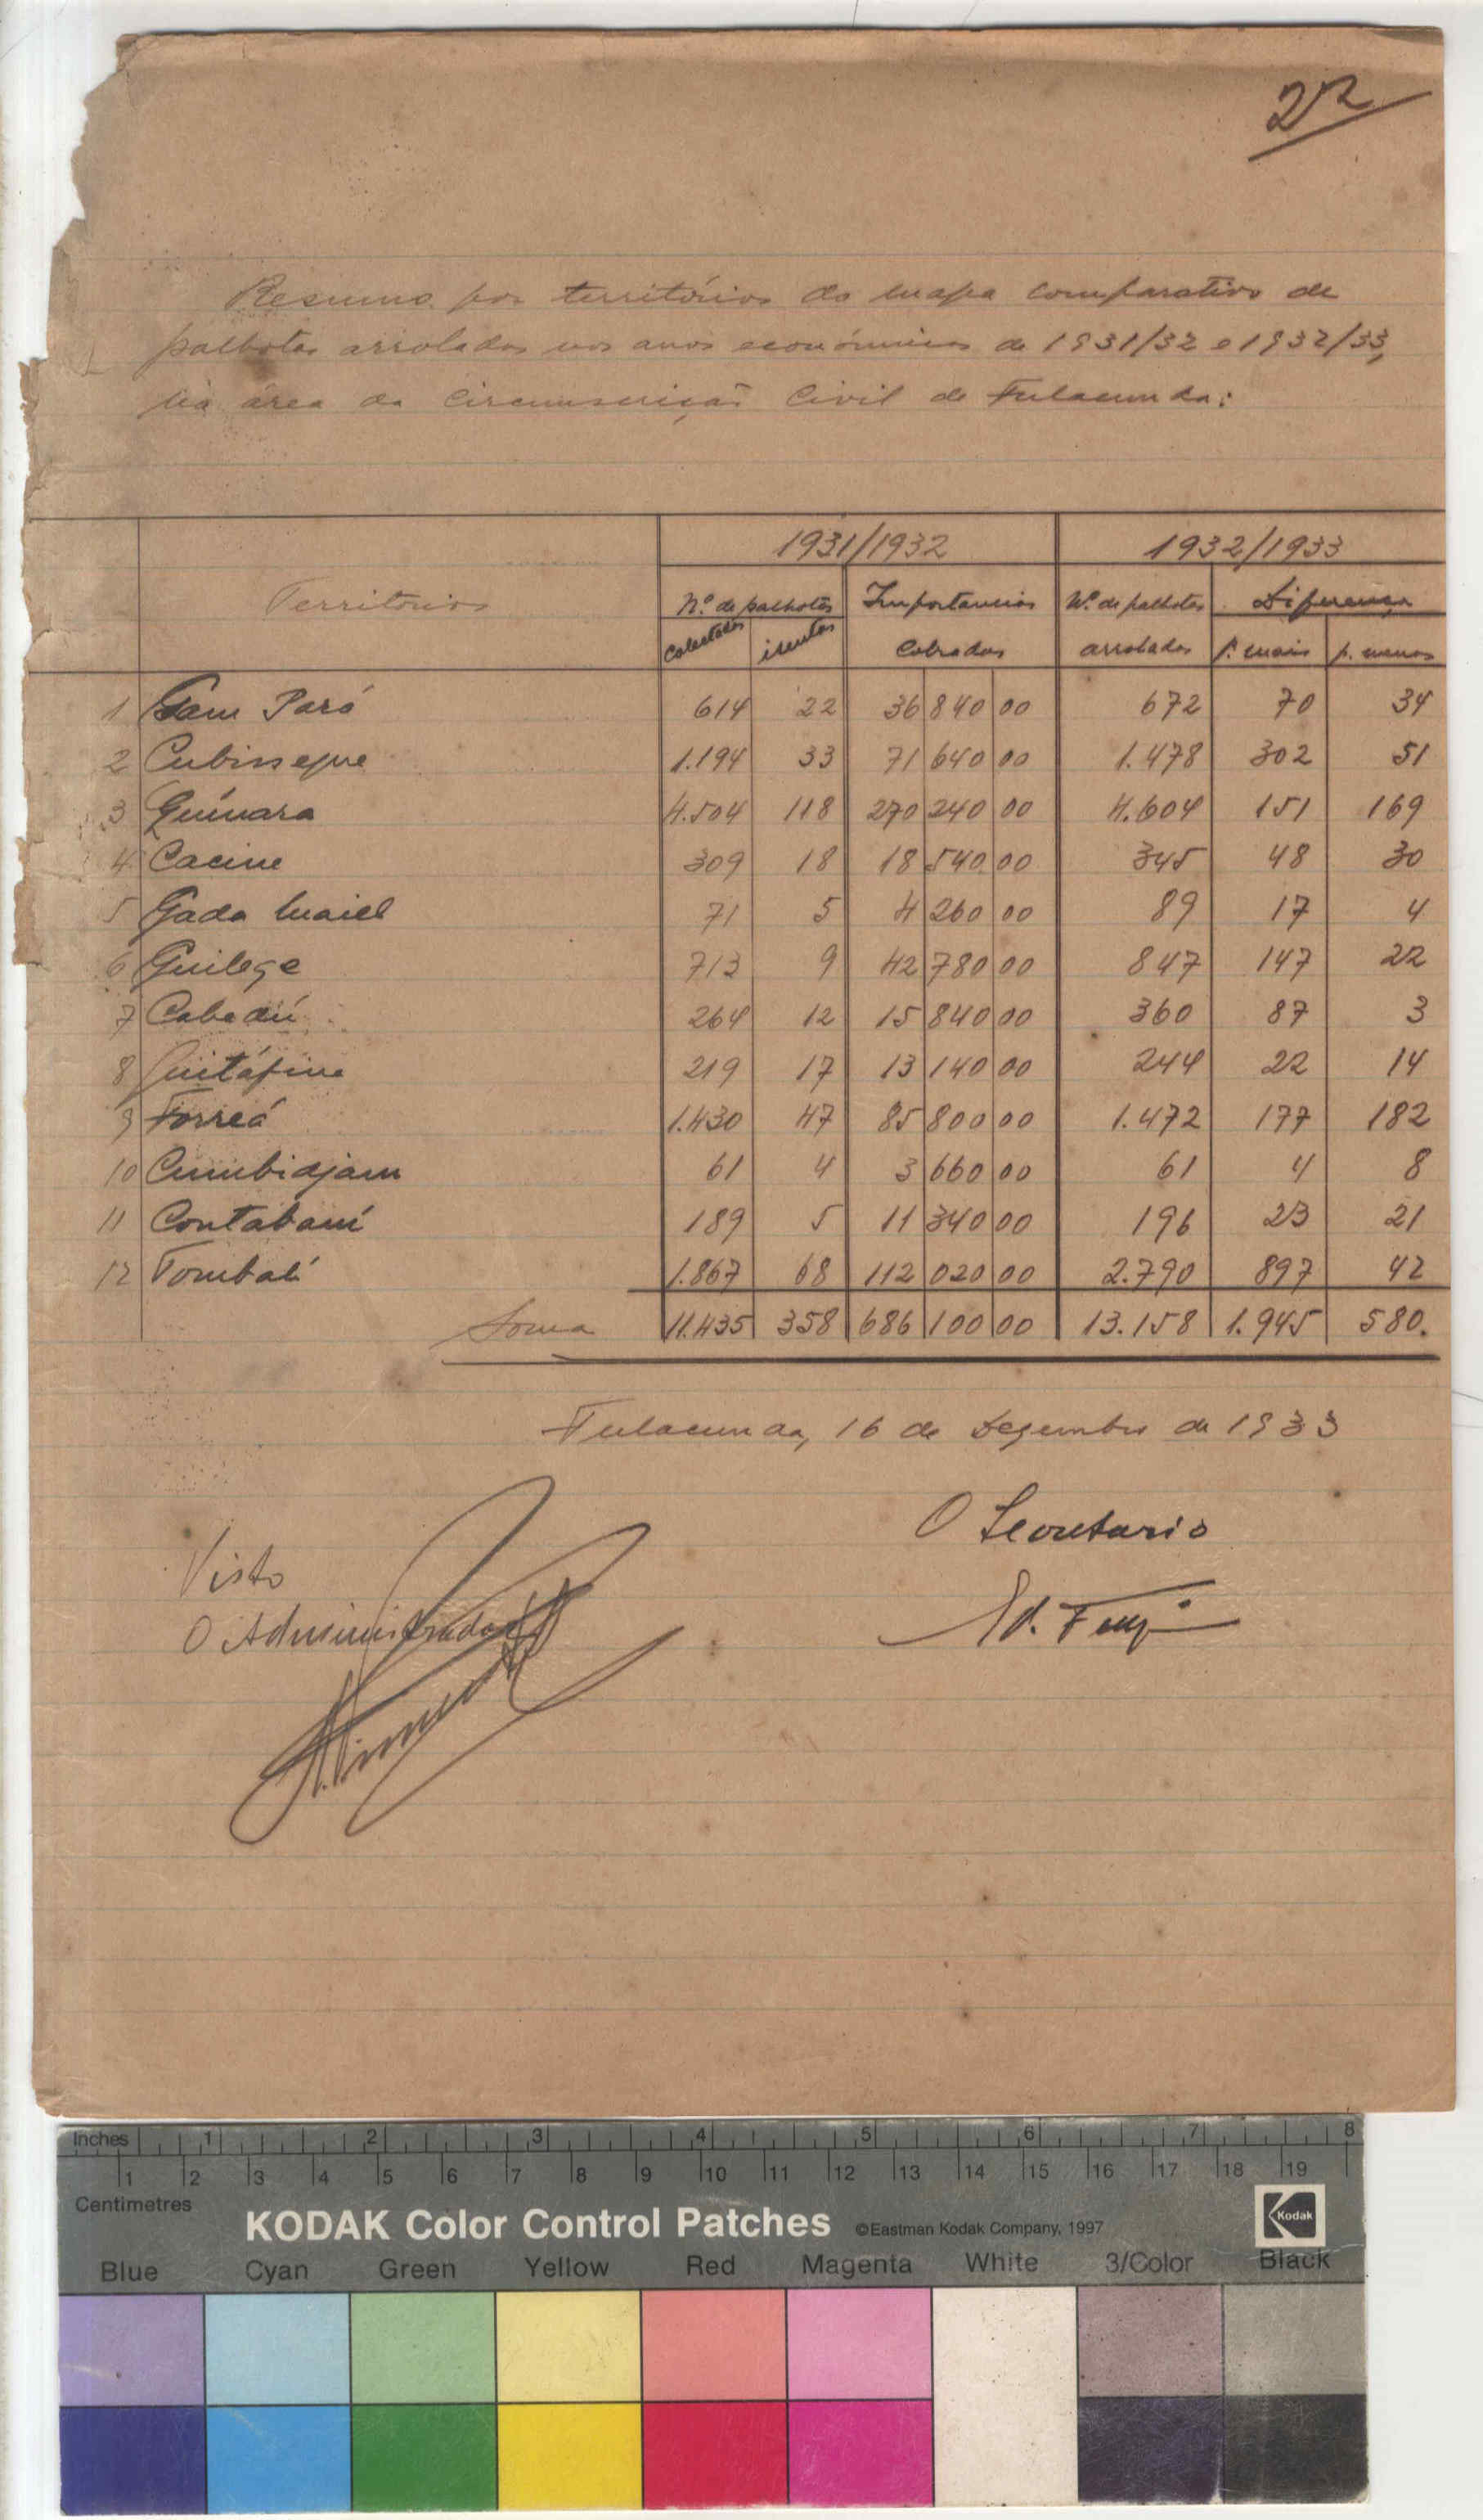 22
Resumo por territórios do mapa comparativo de
palhotas arroladas nos anos económicos de 1931/32 e 1932/33,
na área da Circunscrição Civil de Fulacunda:
Territórios 1931/1932 1932/1933
N.º de palhotas Importancias N.º de palhotas Diferença
Colectadas isentas Cobradas arroladas p. mais p. menos
1 Gam Pará 614 22 36 840 00 672 70 34
2 Cubisseque 1.194 33 71 640 00 1.478 302 51
3 Guínara 4.504 118 270 240 00 4.604 151 169
4 Cacine 309 18 18 540 00 345 48 30
5 Gada Mael 71 5 4 260 00 89 17 4
6 Guilege 713 9 42 780 00 847 147 22
7 Cabedú 264 12 15 840 00 360 87 3
8 Guitáfine 219 17 13 140 00 244 22 14
9 Forreá 1.430 47 85 800 00 1.472 177 182
10 Cumbidjam 61 4 3 660 00 61 4 8
11 Contabaní 189 5 11 340 00 196 23 21
12 Tombalí 1.867 68 112 020 00 2.790 897 42
Soma 11.435 358 686 100 00 13.158 1.945 580.
Fulacunda, 16 de Dezembro de 1933
O Secretario
Visto
O Administrador
Inches 1 2 3 4 5 6 7 8
1 2 3 4 5 6 7 8 9 10 11 12 13 14 15 16 17 18 19
Centimetres
KODAK Color Control Patches ©Eastman Kodak Company, 1997 Kodak
Blue Cyan Green Yellow Red Magenta White 3/Color Black